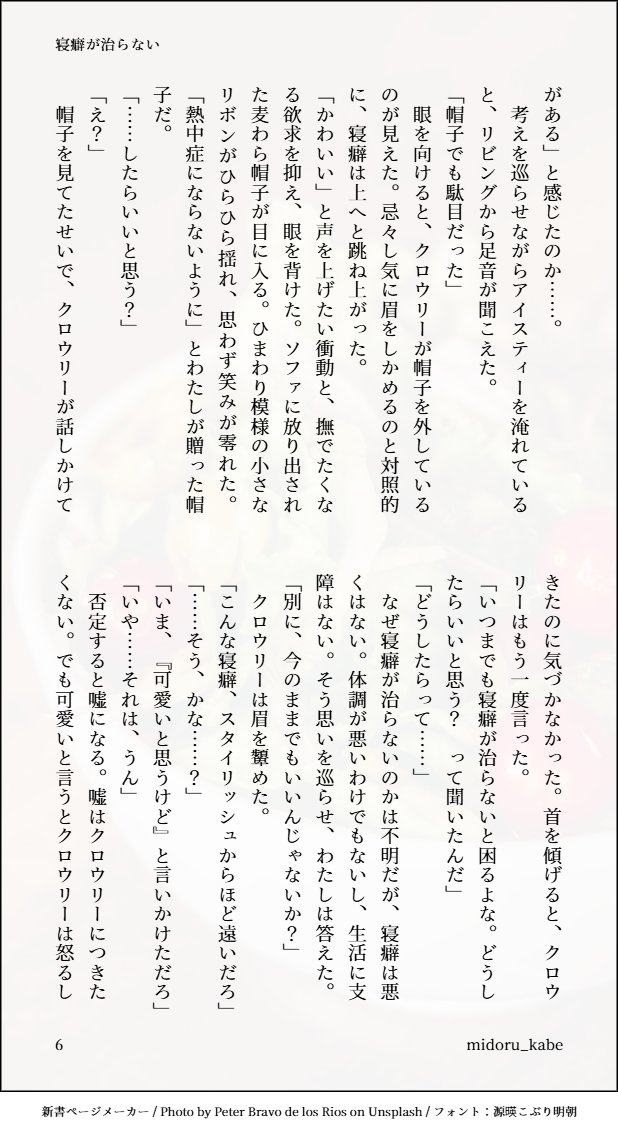 寝癖が治らない
がある」と感じたのか……。
　考えを巡らせながらアイスティーを淹れている
と、リビングから足音が聞こえた。
「帽子でも駄目だった」
　眼を向けると、クロウリーが帽子を外している
のが見えた。忌々し気に眉をしかめるのと対照的
に、寝癖は上へと跳ね上がった。
「かわいい」と声を上げたい衝動と、撫でたくな
る欲求を抑え、眼を背けた。ソファに放り出され
た麦わら帽子が目に入る。ひまわり模様の小さな
リボンがひらひら揺れ、思わず笑みが零れた。
「熱中症にならないように」とわたしが贈った帽
子だ。
「……したらいいと思う？」
「え？」
　帽子を見てたせいで、クロウリーが話しかけて
きたのに気づかなかった。首を傾げると、クロウ
リーはもう一度言った。
「いつまでも寝癖が治らないと困るよな。どうし
たらいいと思う？　って聞いたんだ」
「どうしたらって……」
　なぜ寝癖が治らないのかは不明だが、寝癖は悪
くはない。体調が悪いわけでもないし、生活に支
障はない。そう思いを巡らせ、わたしは答えた。
「別に、今のままでもいいんじゃないか？」
　クロウリーは眉を顰めた。
「こんな寝癖、スタイリッシュからほど遠いだろ」
「……そう、かな……？」
「いま、『可愛いと思うけど』と言いかけただろ」
「いや……それは、うん」
　否定すると嘘になる。嘘はクロウリーにつきた
くない。でも可愛いと言うとクロウリーは怒るし
6
midoru_kabe
新書ページメーカー / Photo by Peter Bravo de los Rios on Unsplash / フォント：源暎こぶり明朝